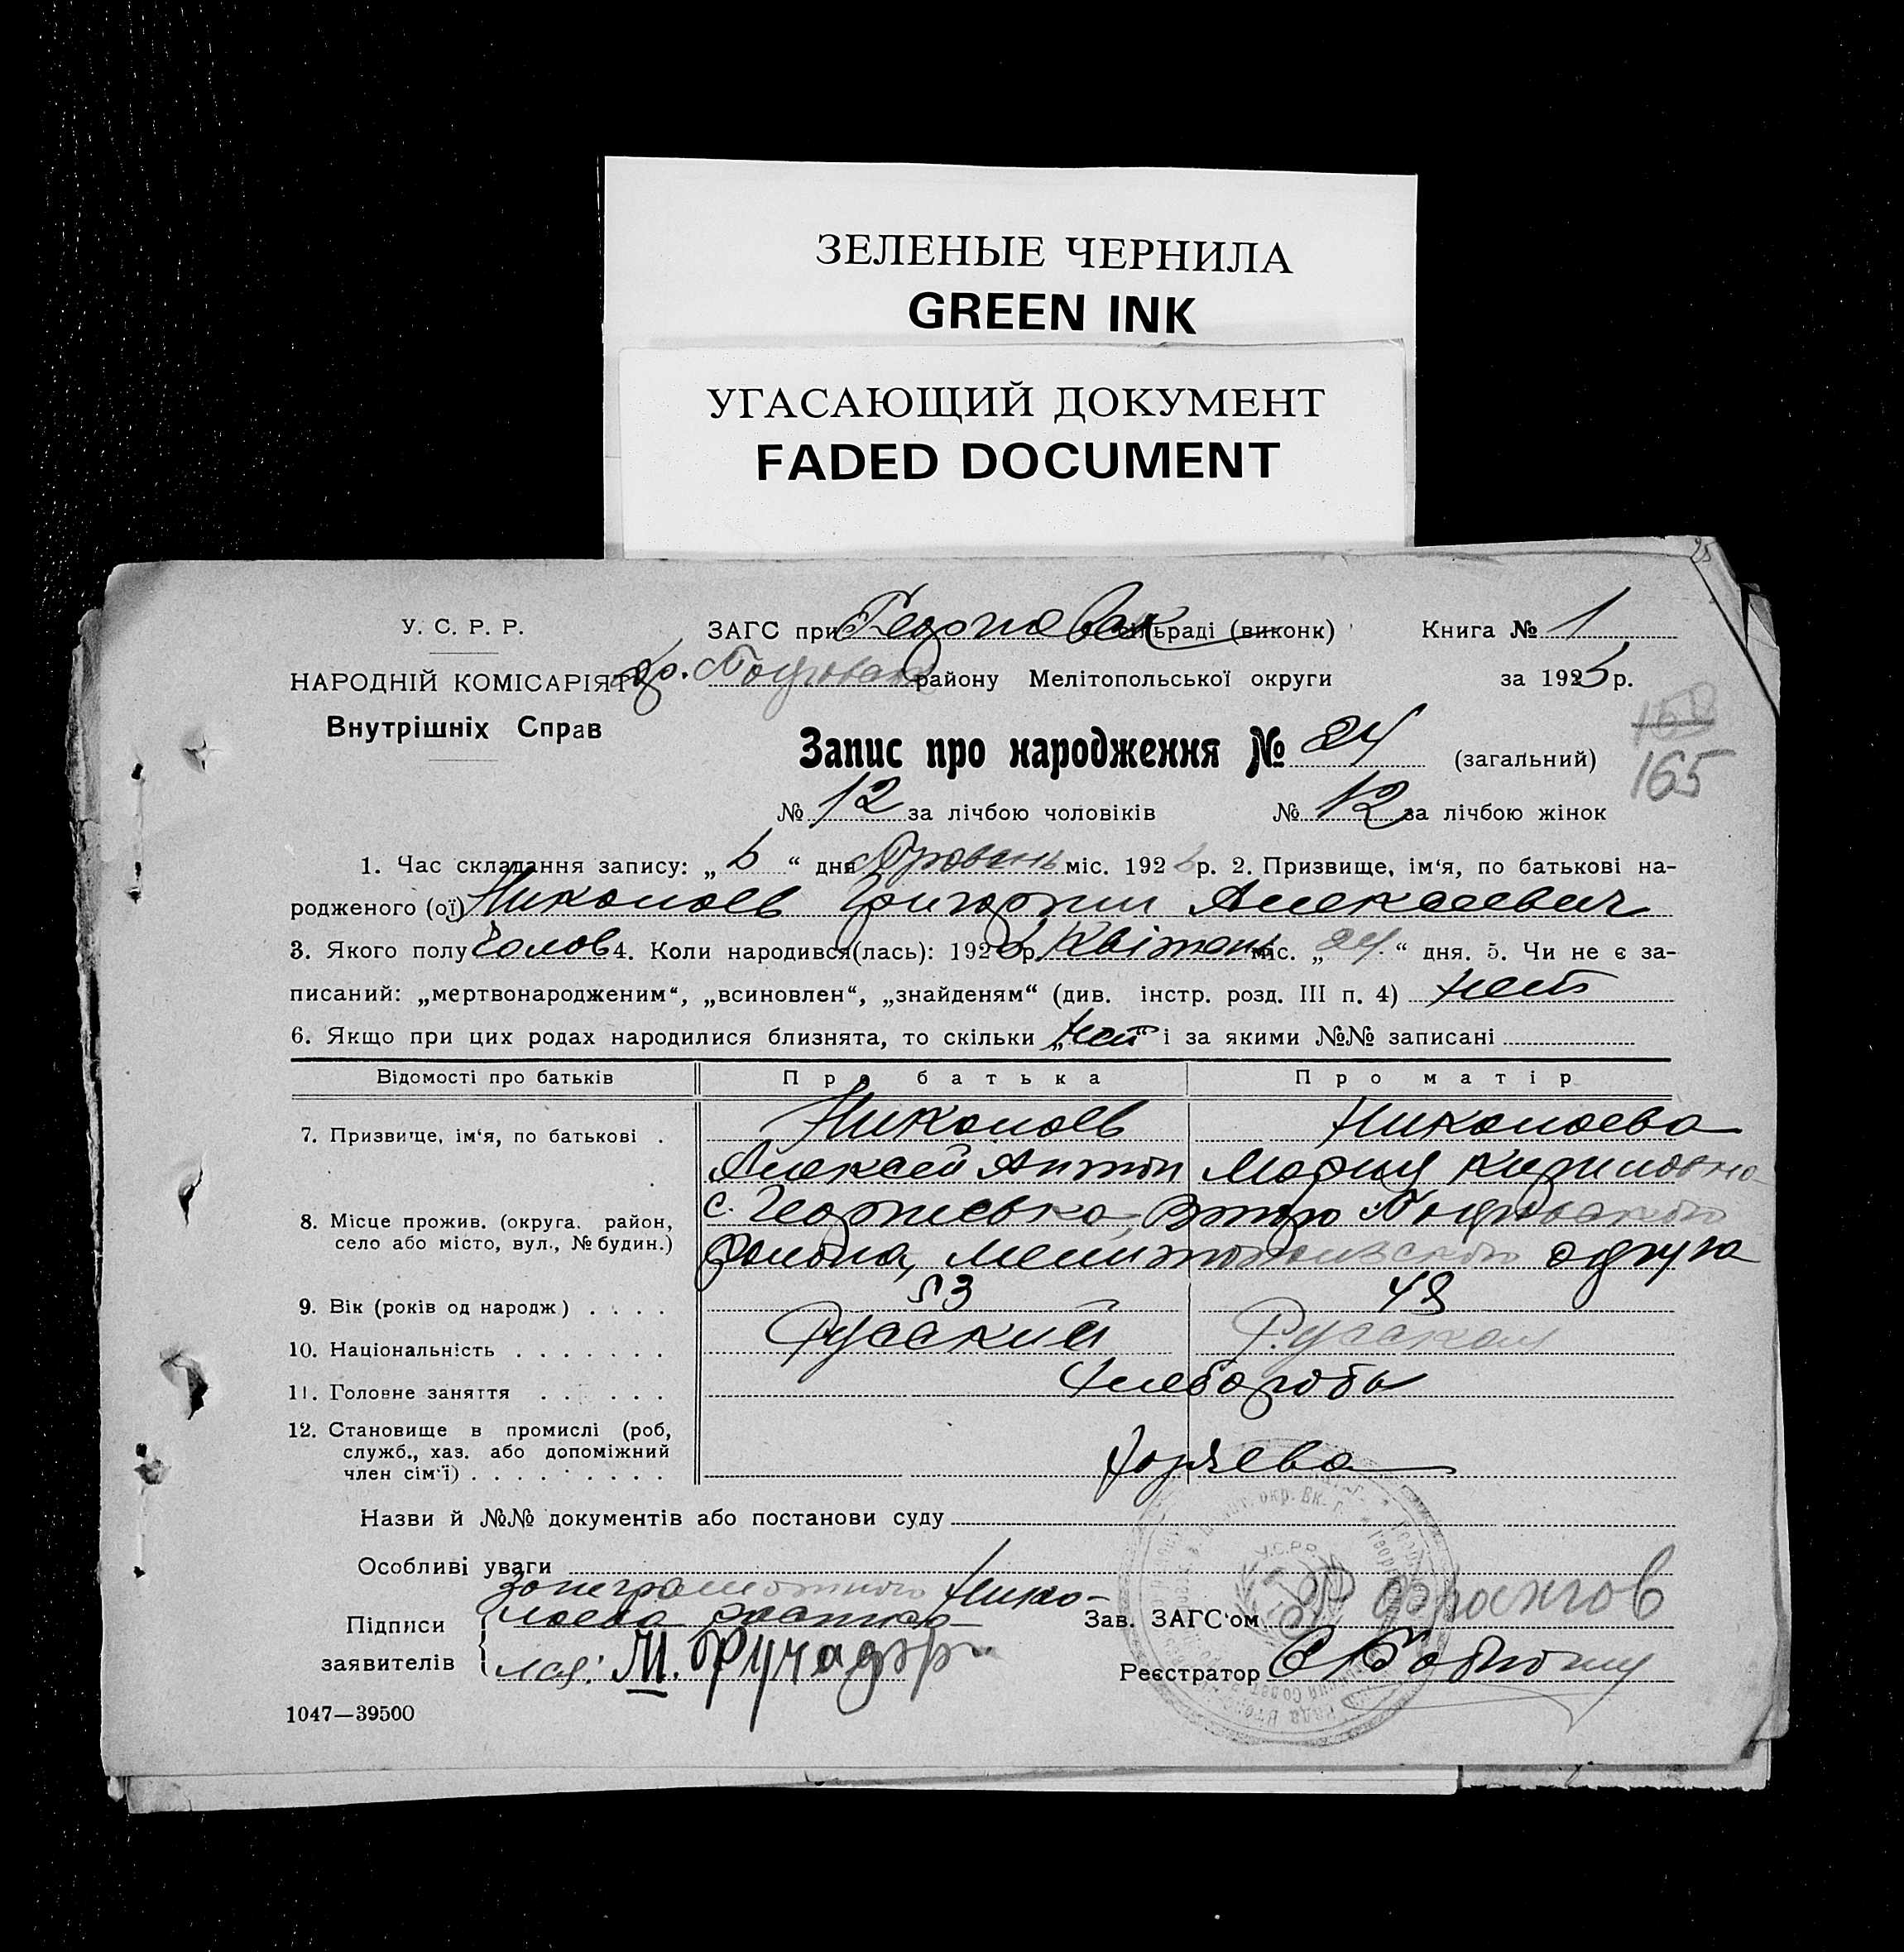 ЗЕЛЕНЫЕ ЧЕРНИЛА
GREEN INK
УГАСАЮЩИЙ ДОКУМЕНТ
FADED DOCUMENT
У. С. Р. Р.
ЗАГС при сільраді (виконк)
Книга № 1
НАРОДНІЙ КОМІСАРІЯТ
району Мелітопольської округи
за 192 р.
Внутрішніх Справ
Запис про народження № 24 (загальний)
165
№ 12 за лічбою чоловіків № 12 за лічбою жінок
1. Час складання запису: „ “ дня міс. 192 р. 2. Призвище, ім‘я, по батькові на-
родженого (ої) Николаев Григорий Алексеевич
3. Якого полу Чолов 4. Коли народився(лась): 192 р. Квітень міс. „24“ дня. 5. Чи не є за-
писаний: „мертвонародженим“, „всиновлен“, „знайденям“ (див. інстр. розд. III п. 4) нет
6. Якщо при цих родах народилися близнята, то скільки „нет“ і за якими №№ записані
Відомості про батьків Про батька Про матір
7. Призвище, ім‘я, по батькові . Николаев Николаева
Алексей Антон Мария Кириловна
8. Місце прожив. (округа. район, с. Георгиевка, Второ Покровского
село або місто, вул., № будин.) района, Мелитопольского округа
9. Вік (років од народж) . . . . 53 48
10. Національність . . . . . . . Русский Русская
11. Головне заняття . . . . . . Хлеборобы
12. Становище в промислі (роб,
служб., хаз. або допоміжний
член сім‘ї) . . . . . . . . .
Назви й №№ документів або постанови суду
Особливі уваги
За неграмотного Нико-
Підписи лаева
заявителів
Зав. ЗАГС‘ом
Реєстратор
1047—39500